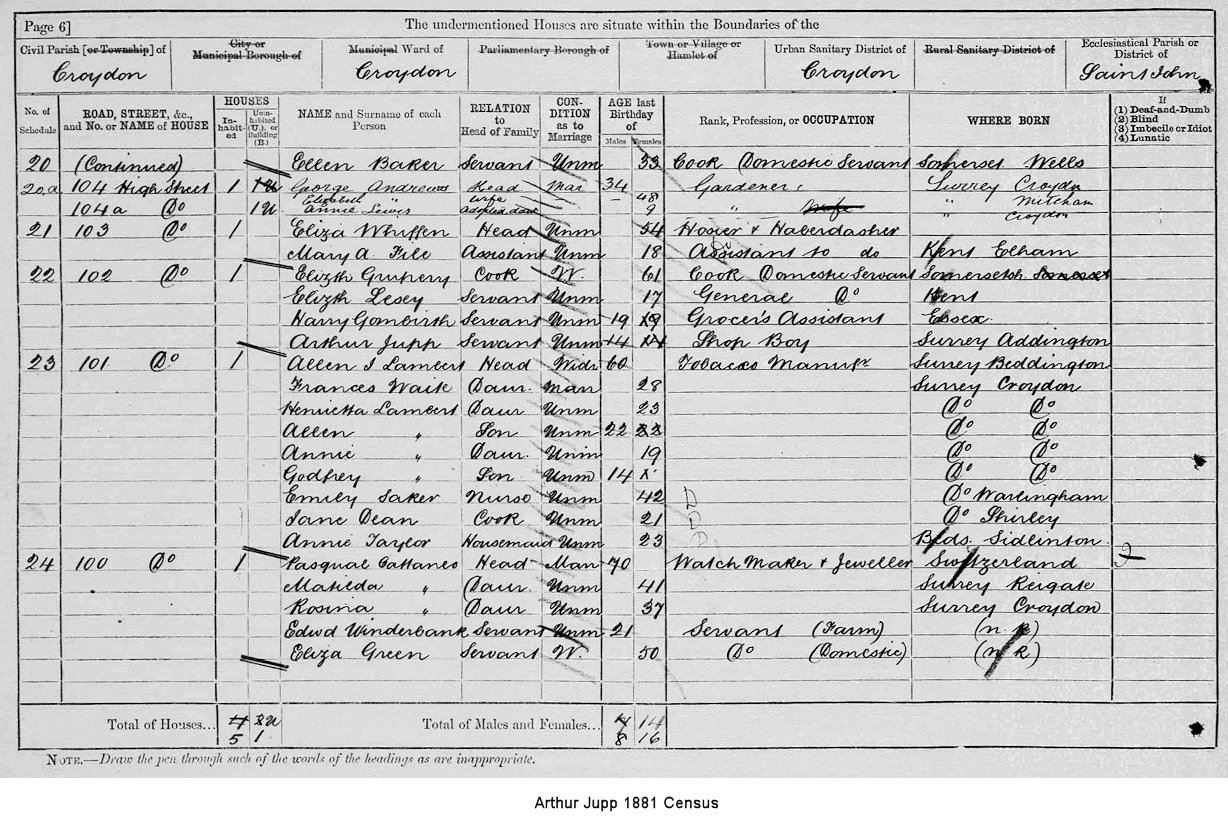 Page 6]
The undermentioned Houses are situate within the Boundaries of the
Civil Parish [or Township] of
Croydon
City or Municipal Borough of
Municipal Ward of
Croydon
Parliamentary Borough of
Town or Village or Hamlet of
Urban Sanitary District of
Croydon
Rural Sanitary District of
Ecclesiastical Parish or District of
Saint John
No. of Schedule
ROAD, STREET, &c., and No. or NAME of HOUSE
HOUSES
In-habit-ed
Unin-habited (U.), or Building (B.)
NAME and Surname of each Person
RELATION to Head of Family
CON-DITION as to Marriage
AGE last Birthday of
Males Females
Rank, Profession, or OCCUPATION
WHERE BORN
If
(1) Deaf-and-Dumb
(2) Blind
(3) Imbecile or Idiot
(4) Lunatic
20 (Continued) Ellen Baker Servant Unm 33 Cook Domestic Servant Somerset Wells
20a 104 High Street 1 1U George Andrews Head Mar 34 Gardener Surrey Croydon
Elizabeth " Wife 48 " Wife " Mitcham
104a Do 1U Annie Lewis Adopted daur 9 " Croydon
21 103 Do 1 Eliza Whiffen Head Unm 54 Hosier & Haberdasher
Mary A. File Assistant Unm 18 Assistant to do Kent Elham
22 102 Do 1 Elizth Cook W. 61 Cook Domestic Servant Somersetsh. Somerset
Elizth Lesey Servant Unm 17 General Do Kent
Harry Gombirth Servant Unm 19 19 Grocer's Assistant Essex
Arthur Jupp Servant Unm 14 14 Shop Boy Surrey Addington
23 101 Do 1 Allen J Lambert Head Widr 60 Tobacco Manufr Surrey Beddington
Frances Waite Daur. Man 28 Surrey Croydon
Henrietta Lambert Daur Unm 23 Do Do
Allen " Son Unm 22 22 Do Do
Annie " Daur. Unm 19 Do Do
Godfrey " Son Unm 14 Do Do
Emily Saker Nurse Unm 42 Do Warlingham
Jane Dean Cook Unm 21 Do Shirley
Annie Taylor Housemaid Unm 23 Beds. Sidlinton
24 100 Do 1 Pasqual Cattaneo Head Man 70 Watch Maker & Jeweller Switzerland
Matilda " Daur. Unm 41 Surrey Reigate
Rosina " Daur Unm 37 Surrey Croydon
Edwd Winderbank Servant Unm 21 Servant (Farm) (n.k)
Eliza Green Servant W. 50 Do (Domestic) (n k)
Total of Houses... 4 2U
5 1
Total of Males and Females... 4 14
8 16
NOTE.—Draw the pen through such of the words of the headings as are inappropriate.
Arthur Jupp 1881 Census